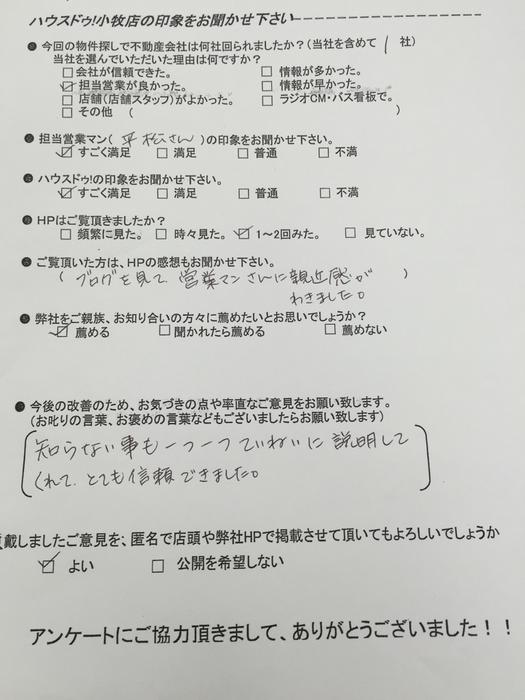 ハウスドゥ!小牧店の印象をお聞かせ下さい
●今回の物件探しで不動産会社は何社回られましたか?(当社を含めて 1 社)
当社を選んでいただいた理由は何ですか?
□会社が信頼できた。 □情報が多かった。
☑担当営業が良かった。 □情報が早かった。
□店舗(店舗スタッフ)がよかった。 □ラジオCM・バス看板で。
□その他 ( )
●担当営業マン( 平松さん )の印象をお聞かせ下さい。
☑すごく満足 □満足 □普通 □不満
●ハウスドゥ!の印象をお聞かせ下さい。
☑すごく満足 □満足 □普通 □不満
●HPはご覧頂きましたか?
□頻繁に見た。 □時々見た。 ☑1〜2回みた。 □見ていない。
●ご覧頂いた方は、HPの感想もお聞かせ下さい。
( ブログを見て、営業マンさんに親近感が )
わきました。
●弊社をご親族、お知り合いの方々に薦めたいとお思いでしょうか?
☑薦める □聞かれたら薦める □薦めない
●今後の改善のため、お気づきの点や率直なご意見をお願い致します。
(お叱りの言葉、お褒めの言葉などもございましたらお願い致します)
知らない事も一つ一つていねいに説明して
くれて、とても信頼できました。
戴しましたご意見を、匿名で店頭や弊社HPで掲載させて頂いてもよろしいでしょうか
☑よい □公開を希望しない
アンケートにご協力頂きまして、ありがとうございました!!